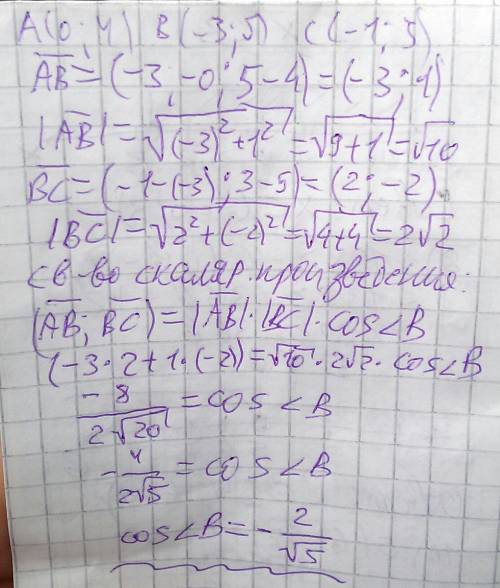 A(0; 4) B(-3; 5) C(-1; 3)
AB = (-3; -0; 5-4) = (-3; 1)
|AB| = √((-3)²+1²) = √(9+1) = √10
BC = (-1-(-3); 3-5) = (2; -2)
|BC| = √(2²+(-2)²) = √(4+4) = 2√2
св-во скаляр. произведения:
(AB; BC) = |AB|·|BC|·cos∠B
(-3·2+1·(-2)) = √10·2√2·cos∠B
-8/(2√20) = cos∠B
-4/(2√5) = cos∠B
cos∠B = -2/√5